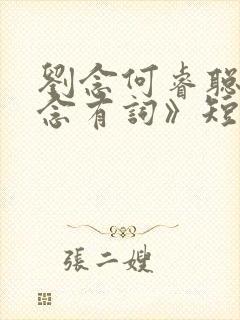 劉念何睿聪
念有詞》短
張二嫂